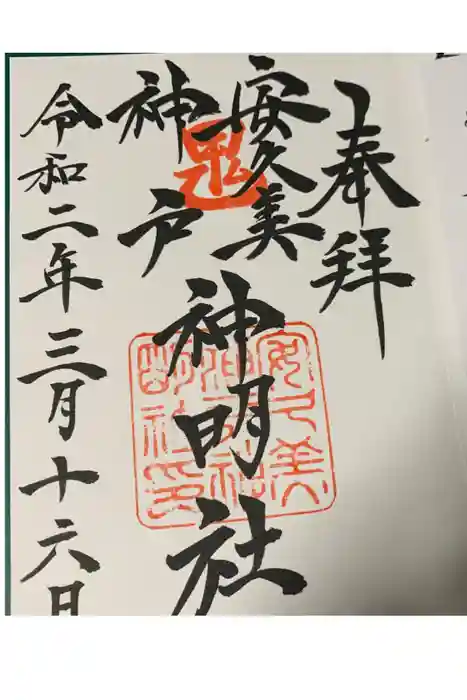 奉拝
安久美
神戸
神明社
令和二年三月十六日